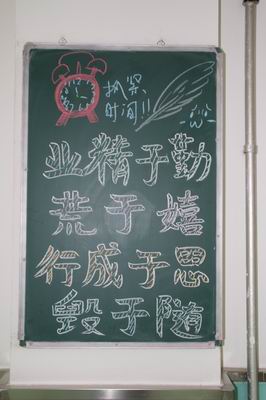 抓紧
时间!!
业精于勤
荒于嬉
行成于思
毁于随